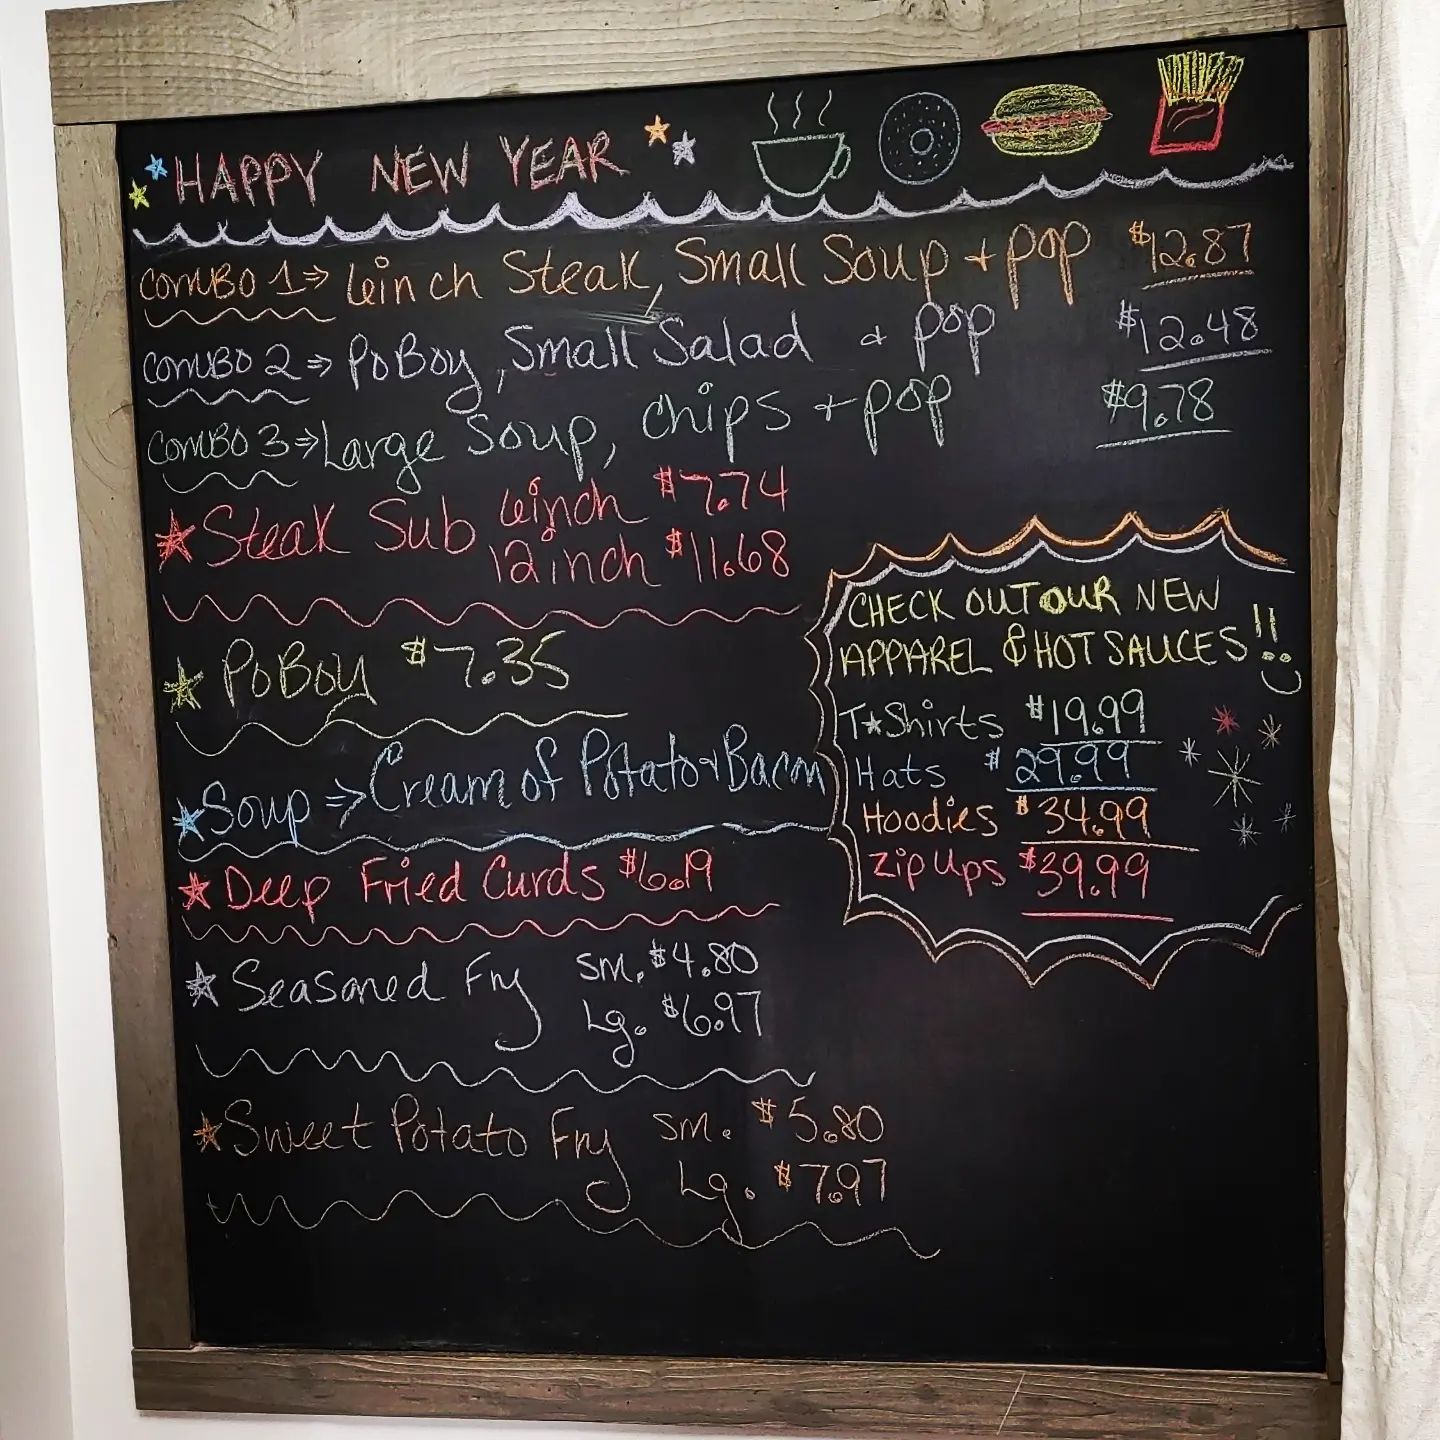 HAPPY NEW YEAR
COMBO 1⇒ 6inch Steak, Small Soup + pop $12.87
COMBO 2⇒ PoBoy, Small Salad & pop $12.48
COMBO 3⇒ Large Soup, chips + pop $9.78
Steak Sub 6inch $7.74
12inch $11.68
PoBoy $7.35
Soup ⇒ Cream of Potato & Bacon
Deep Fried Curds $6.19
Seasoned Fry sm. $4.80
Lg. $6.97
Sweet Potato Fry sm. $5.80
Lg. $7.97
CHECK OUT OUR NEW
APPAREL & HOT SAUCES!!
T★Shirts $19.99
Hats $29.99
Hoodies $34.99
Zip Ups $39.99